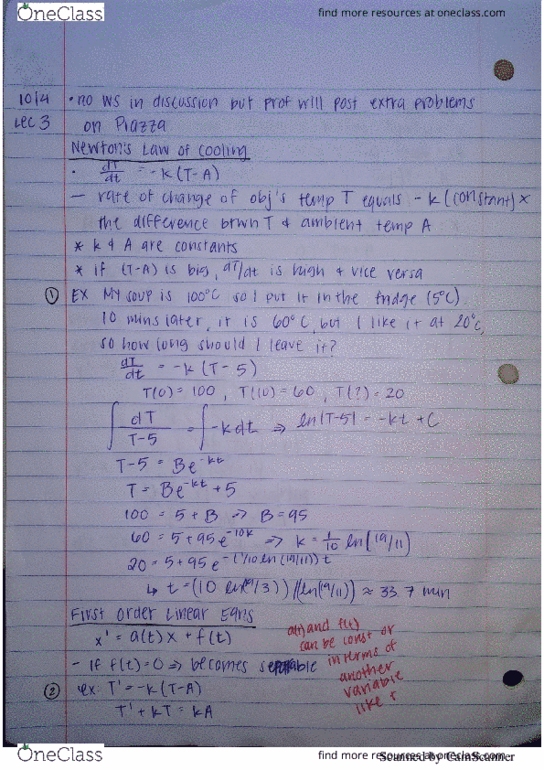 OneClass
find more resources at oneclass.com
10/4 • no WS in discussion but prof will post extra problems
Lec 3 on Piazza
Newton's Law of Cooling
• dT/dt = -k (T-A)
— rate of change of obj's temp T equals -k (constant) ×
the difference btwn T & ambient temp A
* k & A are constants
* if (T-A) is big, dT/dt is high & vice versa
① EX My soup is 100°C so I put it in the fridge (5°C).
10 mins later, it is 60°C, but I like it at 20°C,
so how long should I leave it?
dT/dt = -k (T-5)
T(0) = 100 , T(10) = 60 , T(?) = 20
∫ dT/(T-5) = ∫ -k dt ⇒ ln|T-5| = -kt + C
T-5 = Be^-kt
T = Be^-kt + 5
100 = 5 + B ⇒ B = 95
60 = 5 + 95e^-10k ⇒ k = 1/10 ln(19/11)
20 = 5 + 95e^-(1/10 ln(19/11))t
↳ t = (10 ln(19/3))/(ln(19/11)) ≈ 33.7 min
First Order Linear Eqns
x' = a(t) x + f(t)
a(t) and f(t)
can be const or
in terms of
another
variable
like t
- if f(t) = 0 ⇒ becomes separable
② ex. T' = -k (T-A)
T' + kT = kA
OneClass
find more resources at oneclass.com
Scanned by CamScanner